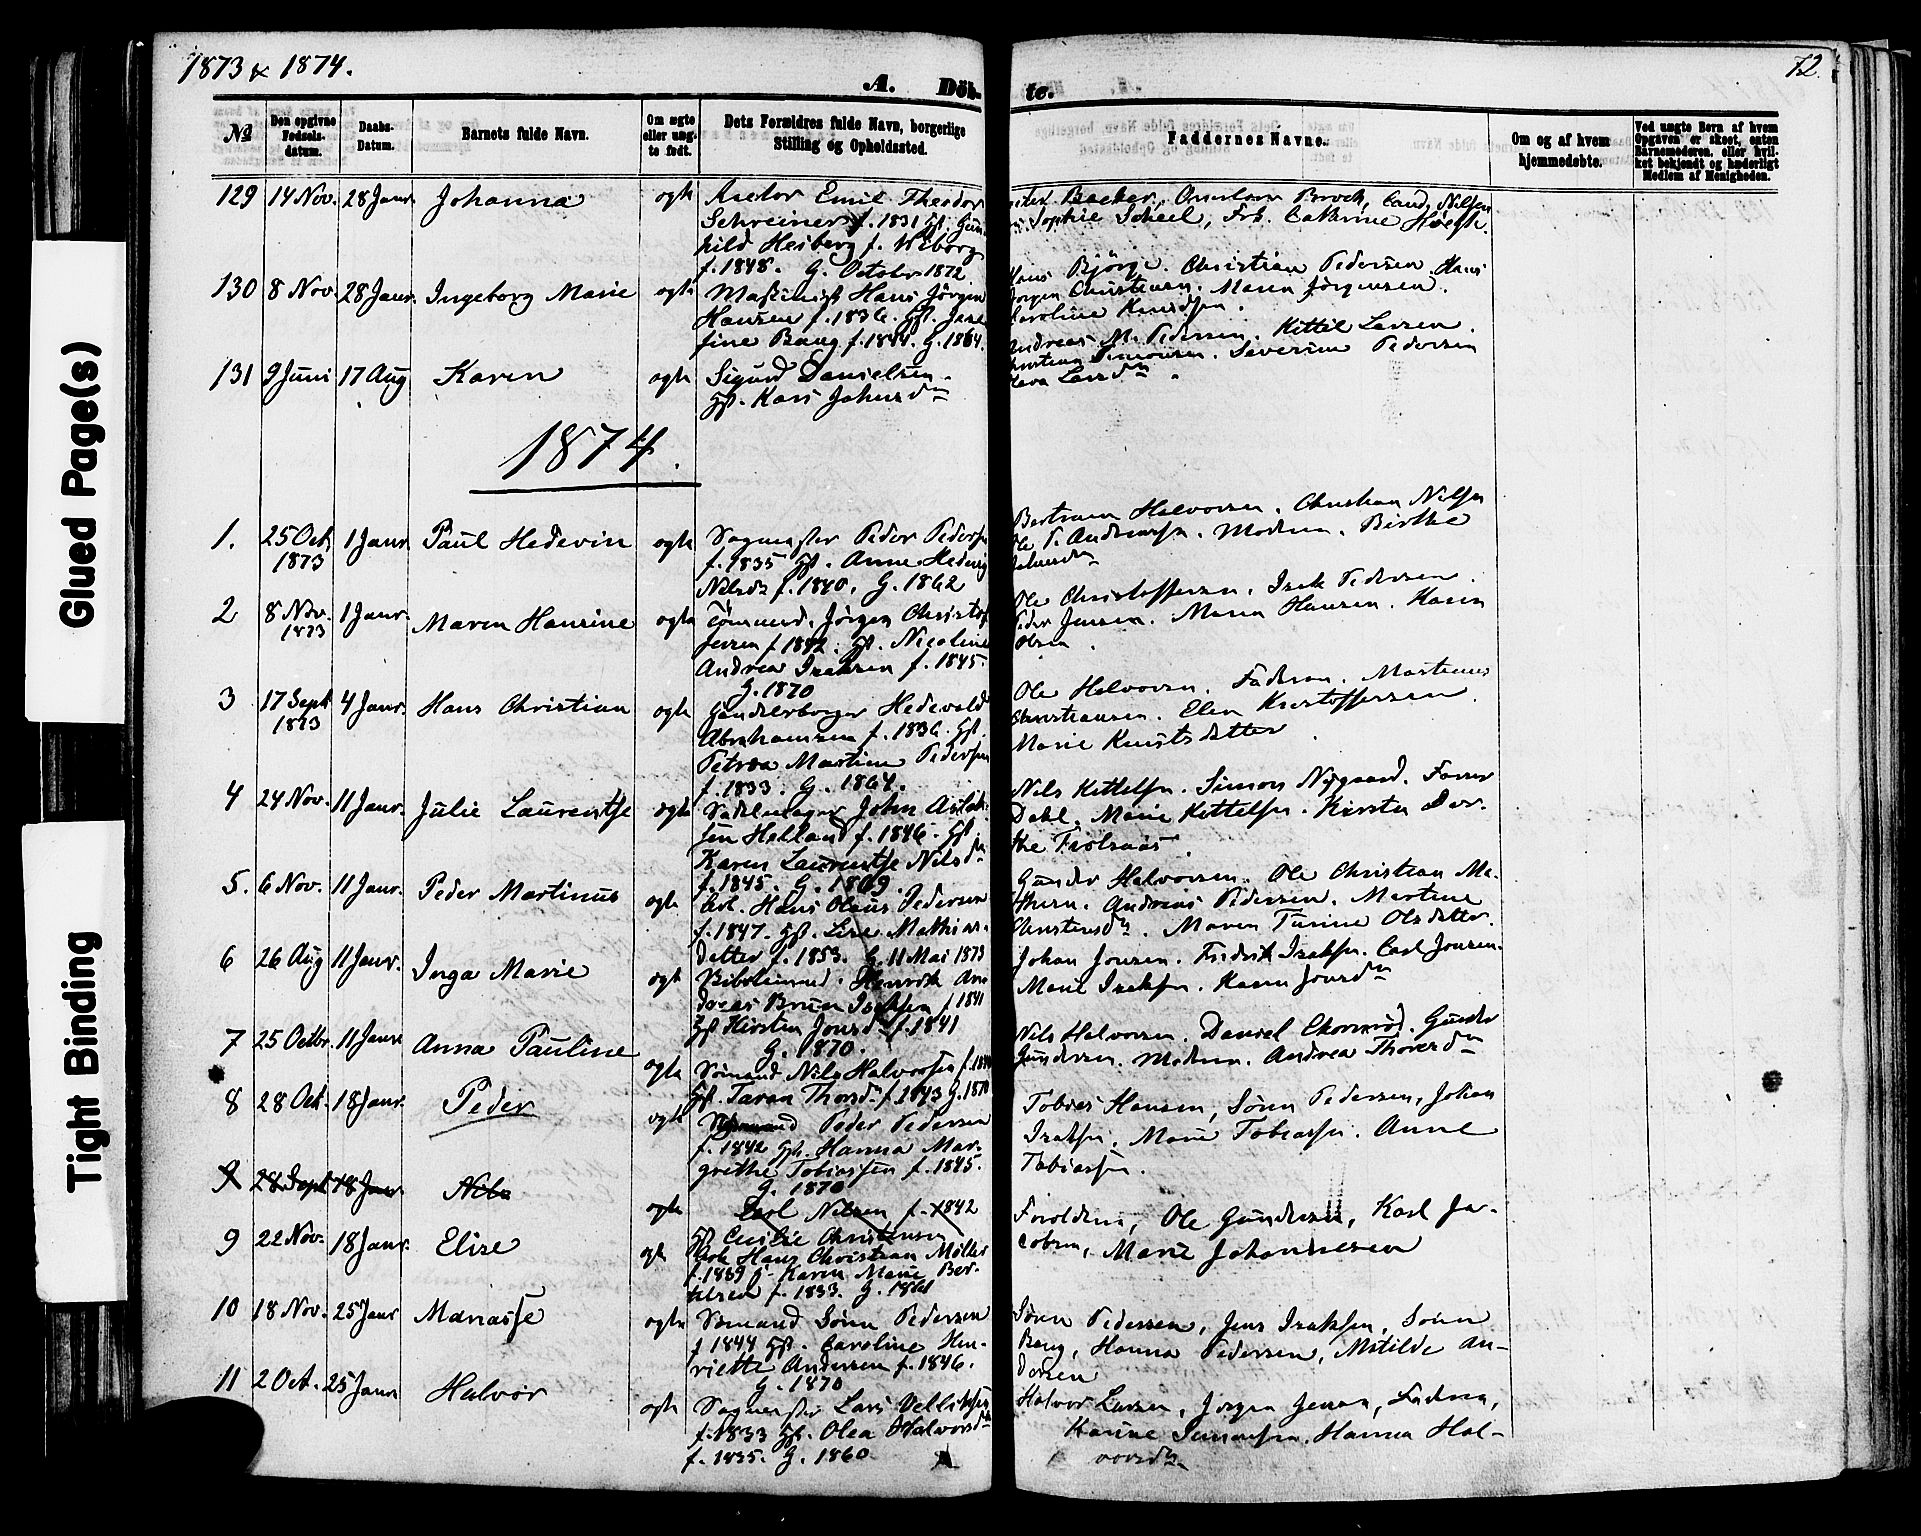 1873 & 1874.
72
A. Döb-
te.
No
Den opgivne Fødsels-datum.
Daabs-Datum.
Barnets fulde Navn.
Om ægte eller uægte født.
Dets Forældres fulde Navn, borgerlige Stilling og Opholdssted.
Faddernes Navne.
Om og af hvem hjemmedøbte.
Ved uægte Børn af hvem Opgaven er skeet, enten Barnemoderen, eller hvilket bekjendt og hæderligt Medlem af Menigheden.
129 14 Nov. 28 Janr Johanna ægte
Emil Theodor
Schreiner f. 1831 Gft. Gun-
hild Heiberg f. Wiborg
f. 1848. G. October 1872
Backer, Brock, Cand. Nilsen
Sophie Scheel, Frk. Cathrine Høegh.
130 8 Nov. 28 Janr. Ingeborg Marie ægte
Maskinist Hans Jørgen
Hansen f. 1836. Gft. Jose-
fine Bang f. 1844. G. 1864.
Hans Bjørge. Christian Pedersen. Hans
Jørgen Christensen. Maren Jørgensen.
Caroline Knudsen.
131 9 Juni 17 Aug Karen ægte
Sigurd Danielsen.
Gft. Kari Johnsdn
Andreas M. Pedersen. Kittil Larsen.
Christian Simonsen. Severine Pedersen
Larsdn.
1874.
1. 25 Oct. 1873 1 Janr Paul Hedevin ægte
Sagmester Peder Pedersen
f. 1835 Gft. Anne Hedevig
Nilsdr f. 1840. G. 1862
Bertram Halvorsen. Christian Nilsen
Ole P. Andreassen. Modren. Birthe
2 8 Nov. 1873 1 Janr. Maren Hansine ægte
Tømmermd. Jørgen Christof-
fersen f. 1842. Gft. Nicoline
Andrea Isaksen f. 1845.
G. 1870
Ole Christoffersen. Isak Pedersen.
Peder Jensen. Maren Hansen. Karen
Olsen.
3 17 Sept 1873 4 Janr. Hans Christian ægte
Hedevald
Abrahamsen f. 1836. Gft.
Petrea Martine Pedersen
f. 1833. G. 1864.
Ole Halvorsen. Faderen. Martinus
Christiansen. Elen Kristoffersen.
Marie Knutsdatter.
4 24 Nov. 11 Janr. Julie Laurentse ægte
Sadelmager John Aslak-
sen Helland f. 1846. Gft.
Karen Laurentse Nilsdn
f. 1845. G. 1869.
Nils Kittelsen. Simon Nygaard.
Dahl. Marie Kittelsen. Kirsten Dor-
the
5. 6 Nov. 11 Janr. Peder Martinus ægte
Arb. Hans Olaus Pedersen
f. 1847. Gft. Lise Mathias-
datter f. 1853. G. 11 Mai 1873
Gunder Halvorsen. Ole Christian Ma-
thisen. Andreas Pedersen. Martine
Christensdn. Maren Turine Olsdatter.
6 26 Aug 11 Janr. Inga Marie ægte
Henrik An-
dreas Bruun Isaksen f. 1841
Gft Kirsten Jonsdn f. 1841
G. 1870.
Johan Jonsen. Fredrik Isaksen. Carl Jonsen.
Marie Isaksen. Karen Jonsdn
7 25 Octbr. 11 Janr Anna Pauline ægte
Sømand Nils Halvorsen f. 1840
Gft. Taran Thorsdn f. 1843 G. 1870
Nils Halvorsen. Daniel. Gunder
Gundersen. Modren. Andrea Thorsdn
8 28 Oct. 18 Janr. Peder ægte
Sømand Peder Pedersen
f. 1842 Gft. Hanna Mar-
grethe Tobiassen f. 1845.
G. 1870
Tobias Hansen, Søren Pedersen, Johan
Isaksen. Marie Tobiassen. Anne
Tobiassen.
9 28 Sept 18 Janr Nils ægte
Carl Nilsen f. 1842
Gft Cecilie Christensen
9 22 Nov. 18 Janr. Elise ægt
Arb. Hans Christian Møller
f. 1839 g. Karen Marie Ber-
telsen f. 1833. G. 1861
Forældrene, Ole Gundersen, Karl Ja-
cobsen, Marie Johannesen
10 18 Nov. 25 Janr Manasse ægte
Sømand Søren Pedersen
f 1844 Gft. Caroline Hen-
riette Andersen f. 1846.
G. 1870
Søren Pedersen, Jens Isaksen, Søren
Bang, Hanna Pedersen, Matilde An-
dersen
11 2 Oct. 25 Janr Halvor ægte
Sagmester Lars
f. 1833 Gft. Olea Halvorsdn
f. 1835. G. 1860
Halvor Larsen, Jørgen Jensen, Faderen,
Karine Simonsen. Hanna Hal-
vorsdn.
Glued Page(s)
Tight Binding